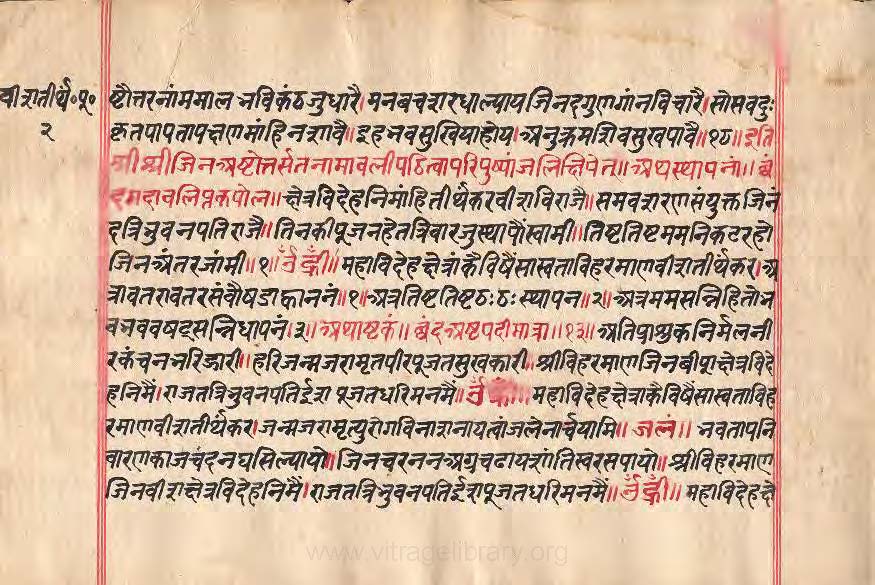 वीशतीर्थ॰पू॰
२
ष्टोत्तरनांममाल भविकंठजुधारै। मनबचशरधाल्याय जिनदगुणगांनविचारै। सोसवदुः
कृतपापतापक्षणमांहिनशावै॥ इहभवसुखियाहोय। अनुक्रमशिवसुखपावै॥१८॥ इति
श्री श्रीजिनअष्टोत्तर्सतनामावलीपठित्वापरिपुष्पांजलिंक्षिपेत्॥ अथस्थापनां॥ छं
दमदावलिप्तकपोल॥ क्षेत्रविदेहनिमांहितीर्थकरवीशविराजै॥ समवशरणसंयुक्तजिनं
दत्रिभुवनपतिराजै॥ तिनकीपूजनहेतत्रिवारजुस्थापौंस्वामी॥ तिष्टतिष्टममनिकटरहो
जिनअंतरजांमी॥१॥ ॐह्रीं॥ महाविदेहक्षेत्रांकैविषैंसास्वताविहरमाणवीशतीर्थकर। अ
त्रावतरावतरसंवौषडाह्वाननं॥१॥ अत्रतिष्टतिष्टठःठःस्थापन॥२॥ अत्रममसन्निहितोभ
वभववषट्सन्निधापनं।३॥ अथाष्टकं॥ छंदअष्टपदीमात्रा॥१३॥ अतिप्राशुकनिर्मलनी
रकंचनभरिझारी॥ हरिजन्मजरामृतपीरपूजतसुखकारी॥ श्रीविहरमाणजिनबीशक्षेत्रविदे
हनिमैं। राजतत्रिभुवनपतिईश पूजतधरिमनमैं॥ ॐह्रीं॥ महाविदेहक्षेत्रांकैविषैंसास्वताविह
रमाणवीशतीर्थकर। जन्मजरामृत्युरोगविनाशनायत्वांजलेनार्चयामि॥ जलं॥ भवतापनि
वारणकाजचंदनघसिल्यायो॥ जिनचरननअग्रचढायशांतिस्वरसपायो॥ श्रीविहरमाण
जिनवीशक्षेत्रविदेहनिमैं। राजतत्रिभुवनपतिईशपूजतधरिमनमैं॥ ॐह्रीं॥ महाविदेहक्षे
www.vitragelibrary.org